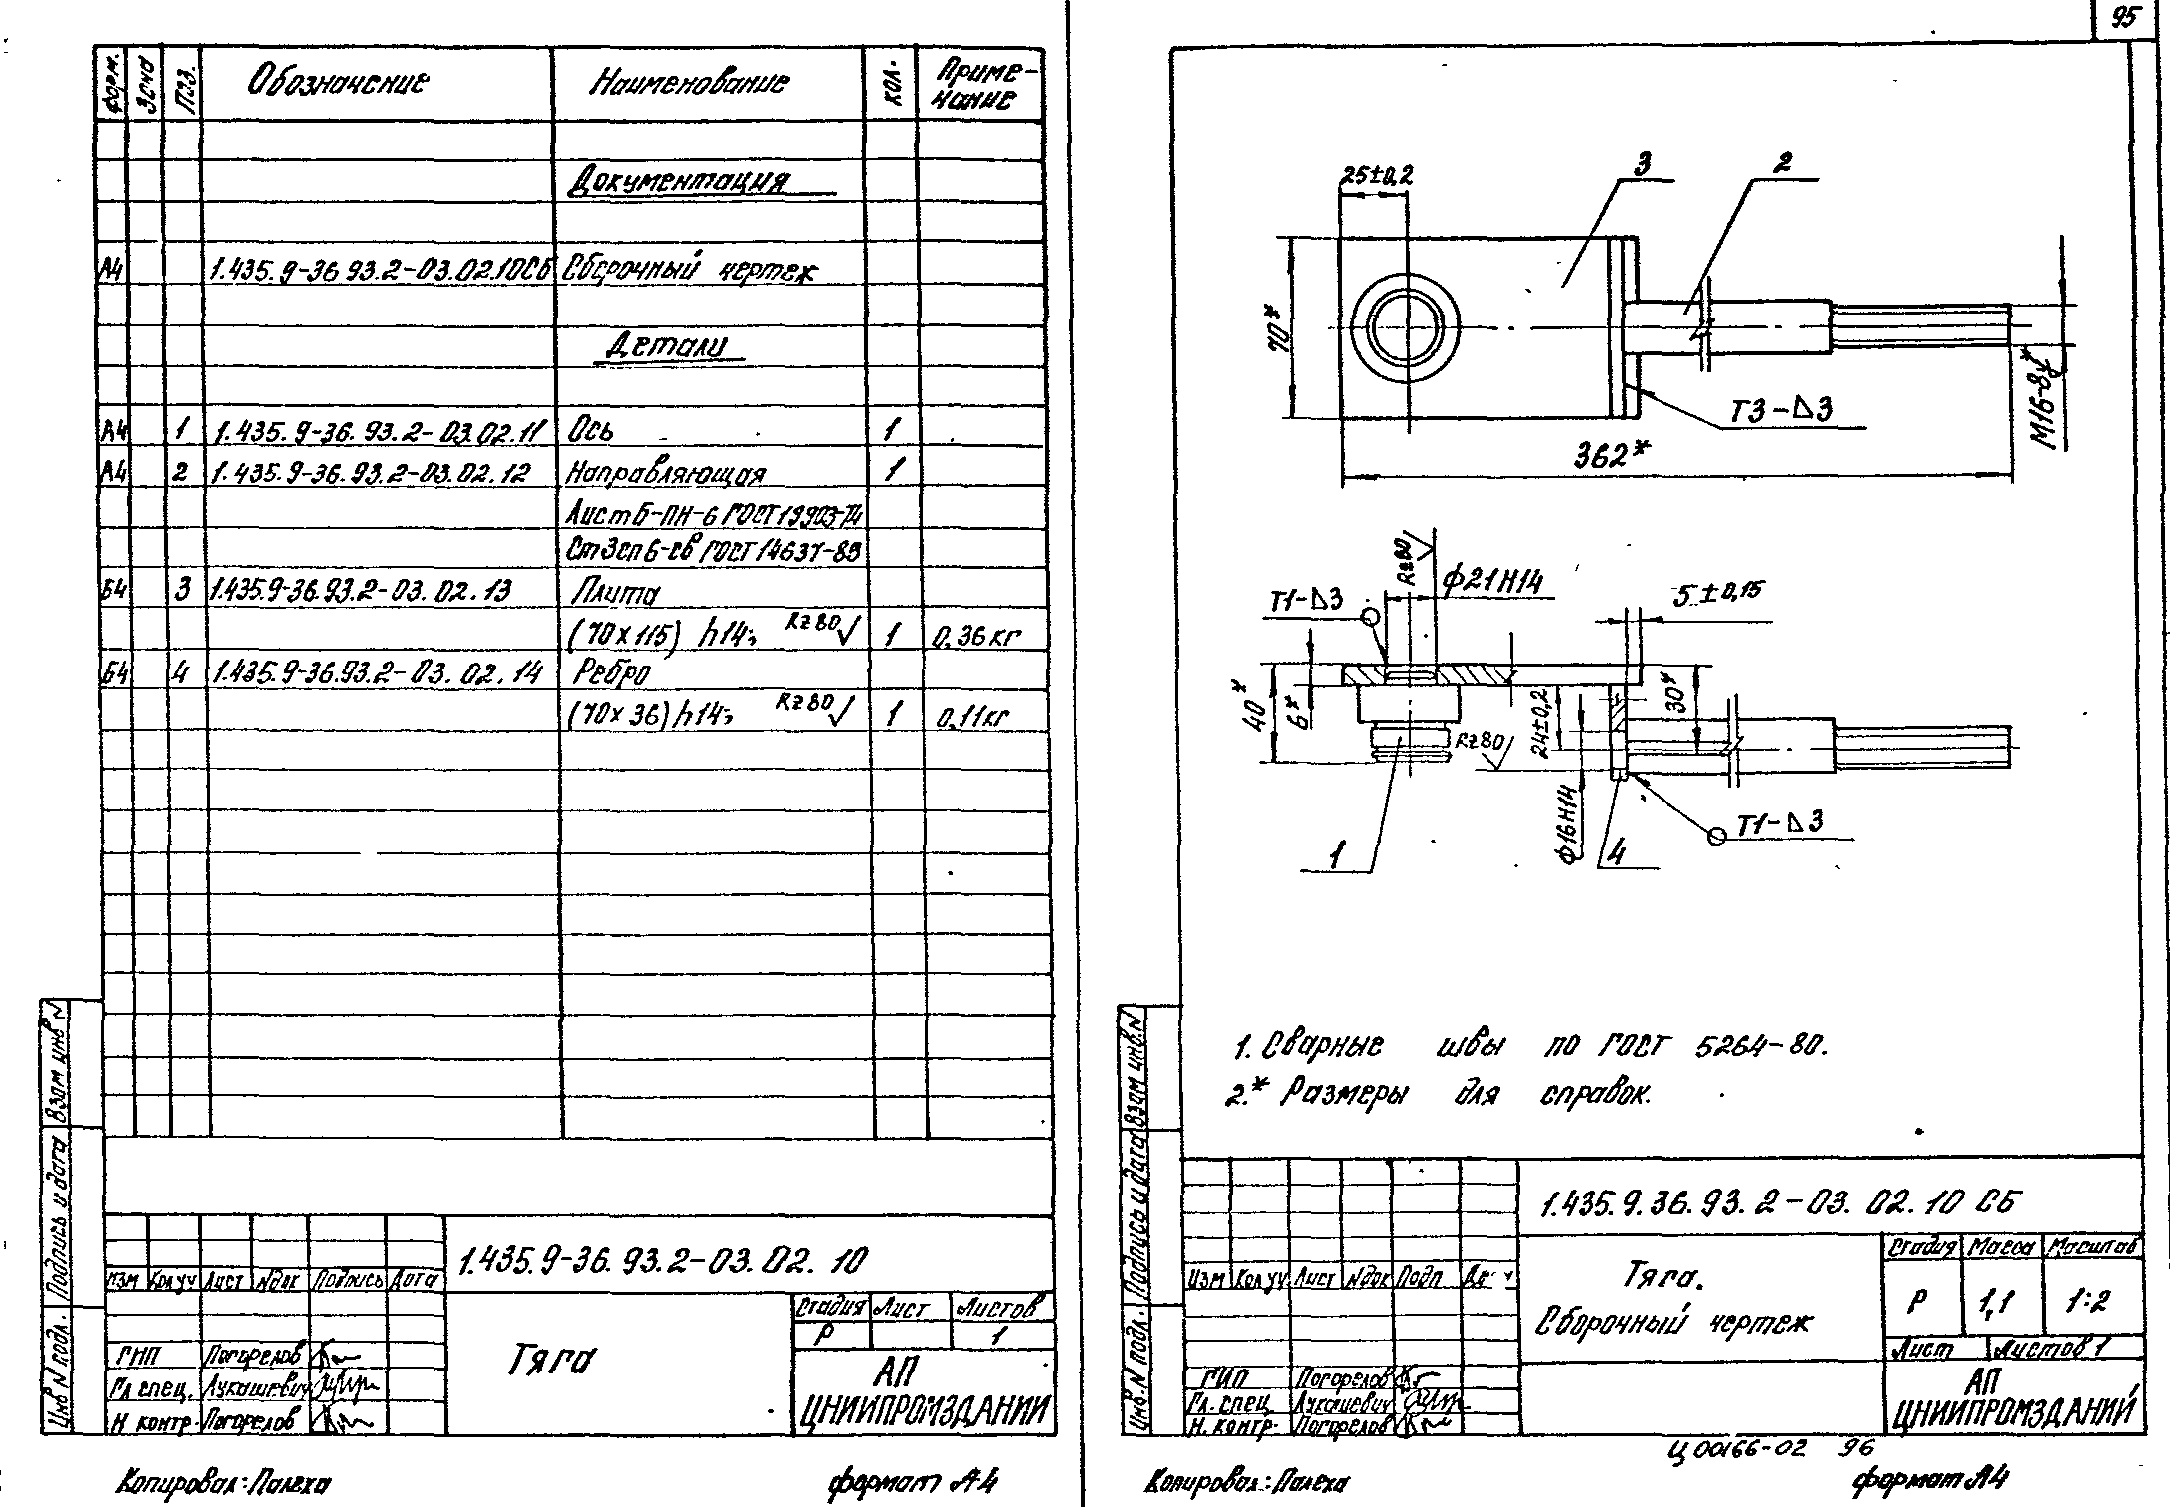 95
форм.
Зона
Поз.
Обозначение
Наименование
кол.
Приме-
чание
Документация
А4 1.435.9-36 93.2-03.02.10СБ Сборочный чертеж
Детали
А4 1 1.435.9-36.93.2-03.02.11 Ось 1
А4 2 1.435.9-36.93.2-03.02.12 Направляющая 1
Лист Б-ПН-6 ГОСТ 19903-74
Ст3сп6-св ГОСТ 14637-89
Б4 3 1.435.9-36.93.2-03.02.13 Плита
(70х115) h14; Rz80 1 0,36кг
Б4 4 1.435.9-36.93.2-03.02.14 Ребро
(70х36) h14; Rz80 1 0,11кг
Взам инв N
Подпись и дата
Инв N подл.
Изм Кол уч Лист Nдок Подпись Дата
1.435.9-36.93.2-03.02.10
Тяга
Стадия Лист Листов
Р 1
ГИП Погорелов
Гл спец. Лукашевич
Н контр. Погорелов
АП
ЦНИИПРОМЗДАНИЙ
Копировал: Палеха
формат А4
25±0,2
3
2
70*
М16-8g*
Т3-△3
362*
Rz80
Ф21Н14
Т1-△3
5±0,15
40*
6*
Rz80
24±0,2
30*
Ф16Н14
Т1-△3
1
4
1. Сварные швы по ГОСТ 5264-80.
2.* Размеры для справок.
Взам инв.N
Подпись и дата
Инв.N подл.
1.435.9.36.93.2-03.02.10 СБ
Изм Кол уч Лист Nдок Подп
Тяга.
Сборочный чертеж
Стадия Масса Масштаб
Р 1,1 1:2
Лист Листов 1
ГИП Погорелов
Гл. спец Лукашевич
Н. контр. Погорелов
АП
ЦНИИПРОМЗДАНИЙ
Ц 00166-02 96
Копировал: Палеха
формат А4